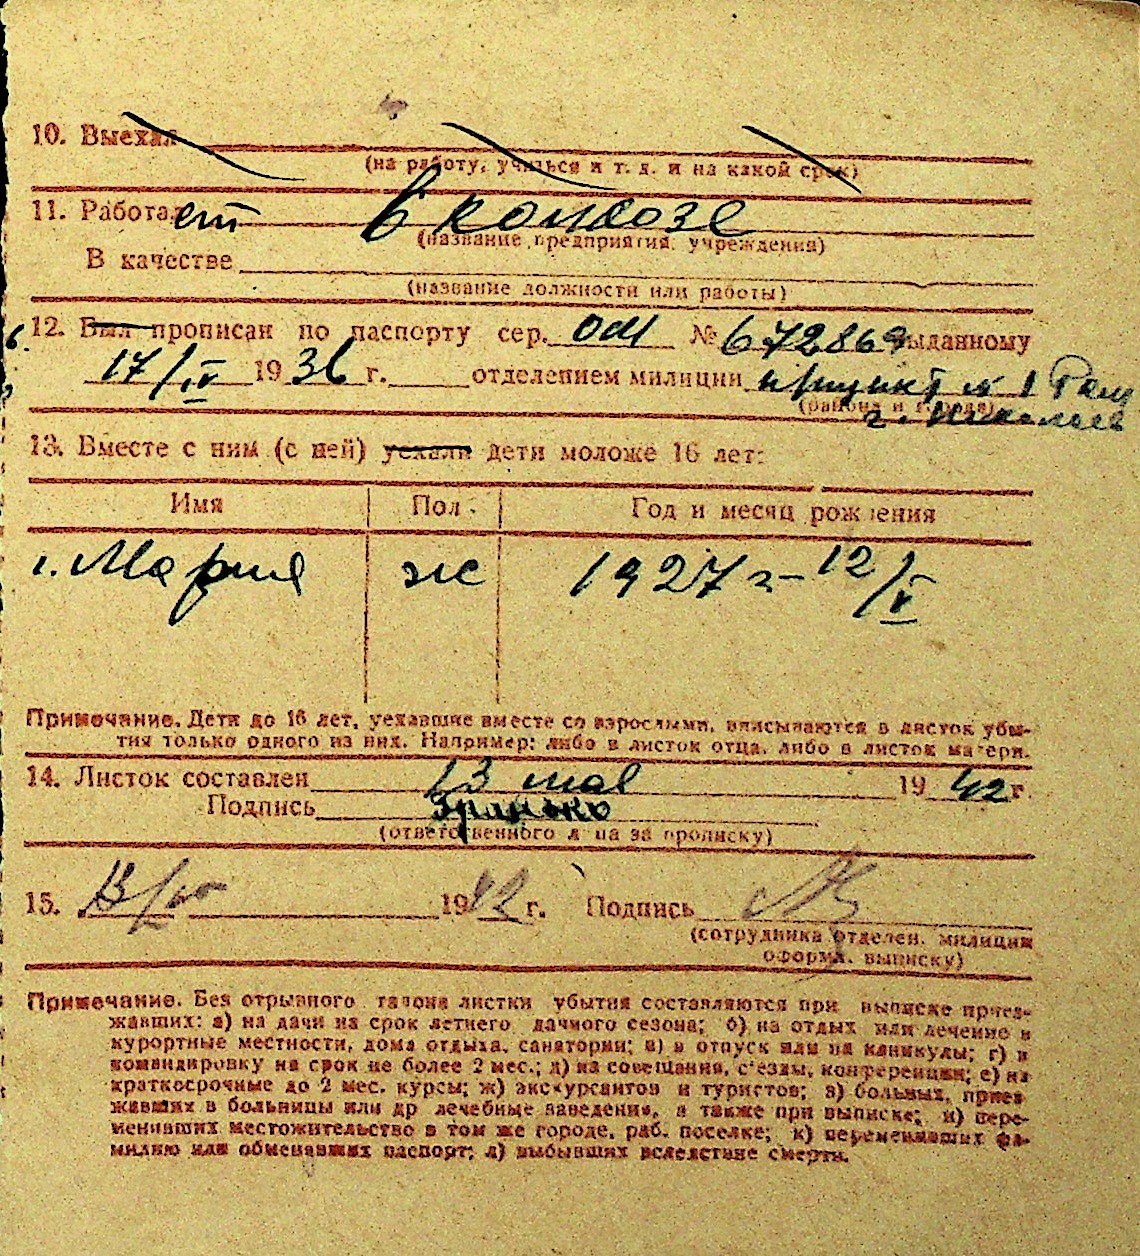 10. Выехал
(на работу, учиться и т. д. и на какой срок)
11. Работает в колхозе
(название предприятия, учреждения)
В качестве
(название должности или работы)
12. Был прописан по паспорту сер. ОМ № 672869 выданному
17/IV 1936 г. отделением милиции № 1
(района и города)
г. Николаев
13. Вместе с ним (с ней) уехали дети моложе 16 лет:
Имя Пол Год и месяц рождения
1. Мария ж 1927 г– 12/V
Примечание. Дети до 16 лет, уехавшие вместе со взрослыми, вписываются в листок убы-
тия только одного из них. Например: либо в листок отца, либо в листок матери.
14. Листок составлен 13 мая 1942 г.
Подпись
(ответственного лица за прописку)
15. 1942 г. Подпись
(сотрудника отделен. милиции
оформл. выписку)
Примечание. Без отрывного талона листки убытия составляются при выписке приез-
жавших: а) на дачи на срок летнего дачного сезона; б) на отдых или лечение в
курортные местности, дома отдыха, санатории; в) в отпуск или на каникулы; г) в
командировку на срок не более 2 мес.; д) на совещания, с'езды, конференции; е) на
краткосрочные до 2 мес. курсы; ж) экскурсантов и туристов; з) больных, приез
жавших в больницы или др лечебные заведения, а также при выписке; и) пере-
менивших местожительство в том же городе, раб. поселке; к) переменивших фа-
милию или обменявших паспорт; л) выбывших вследствие смерти.